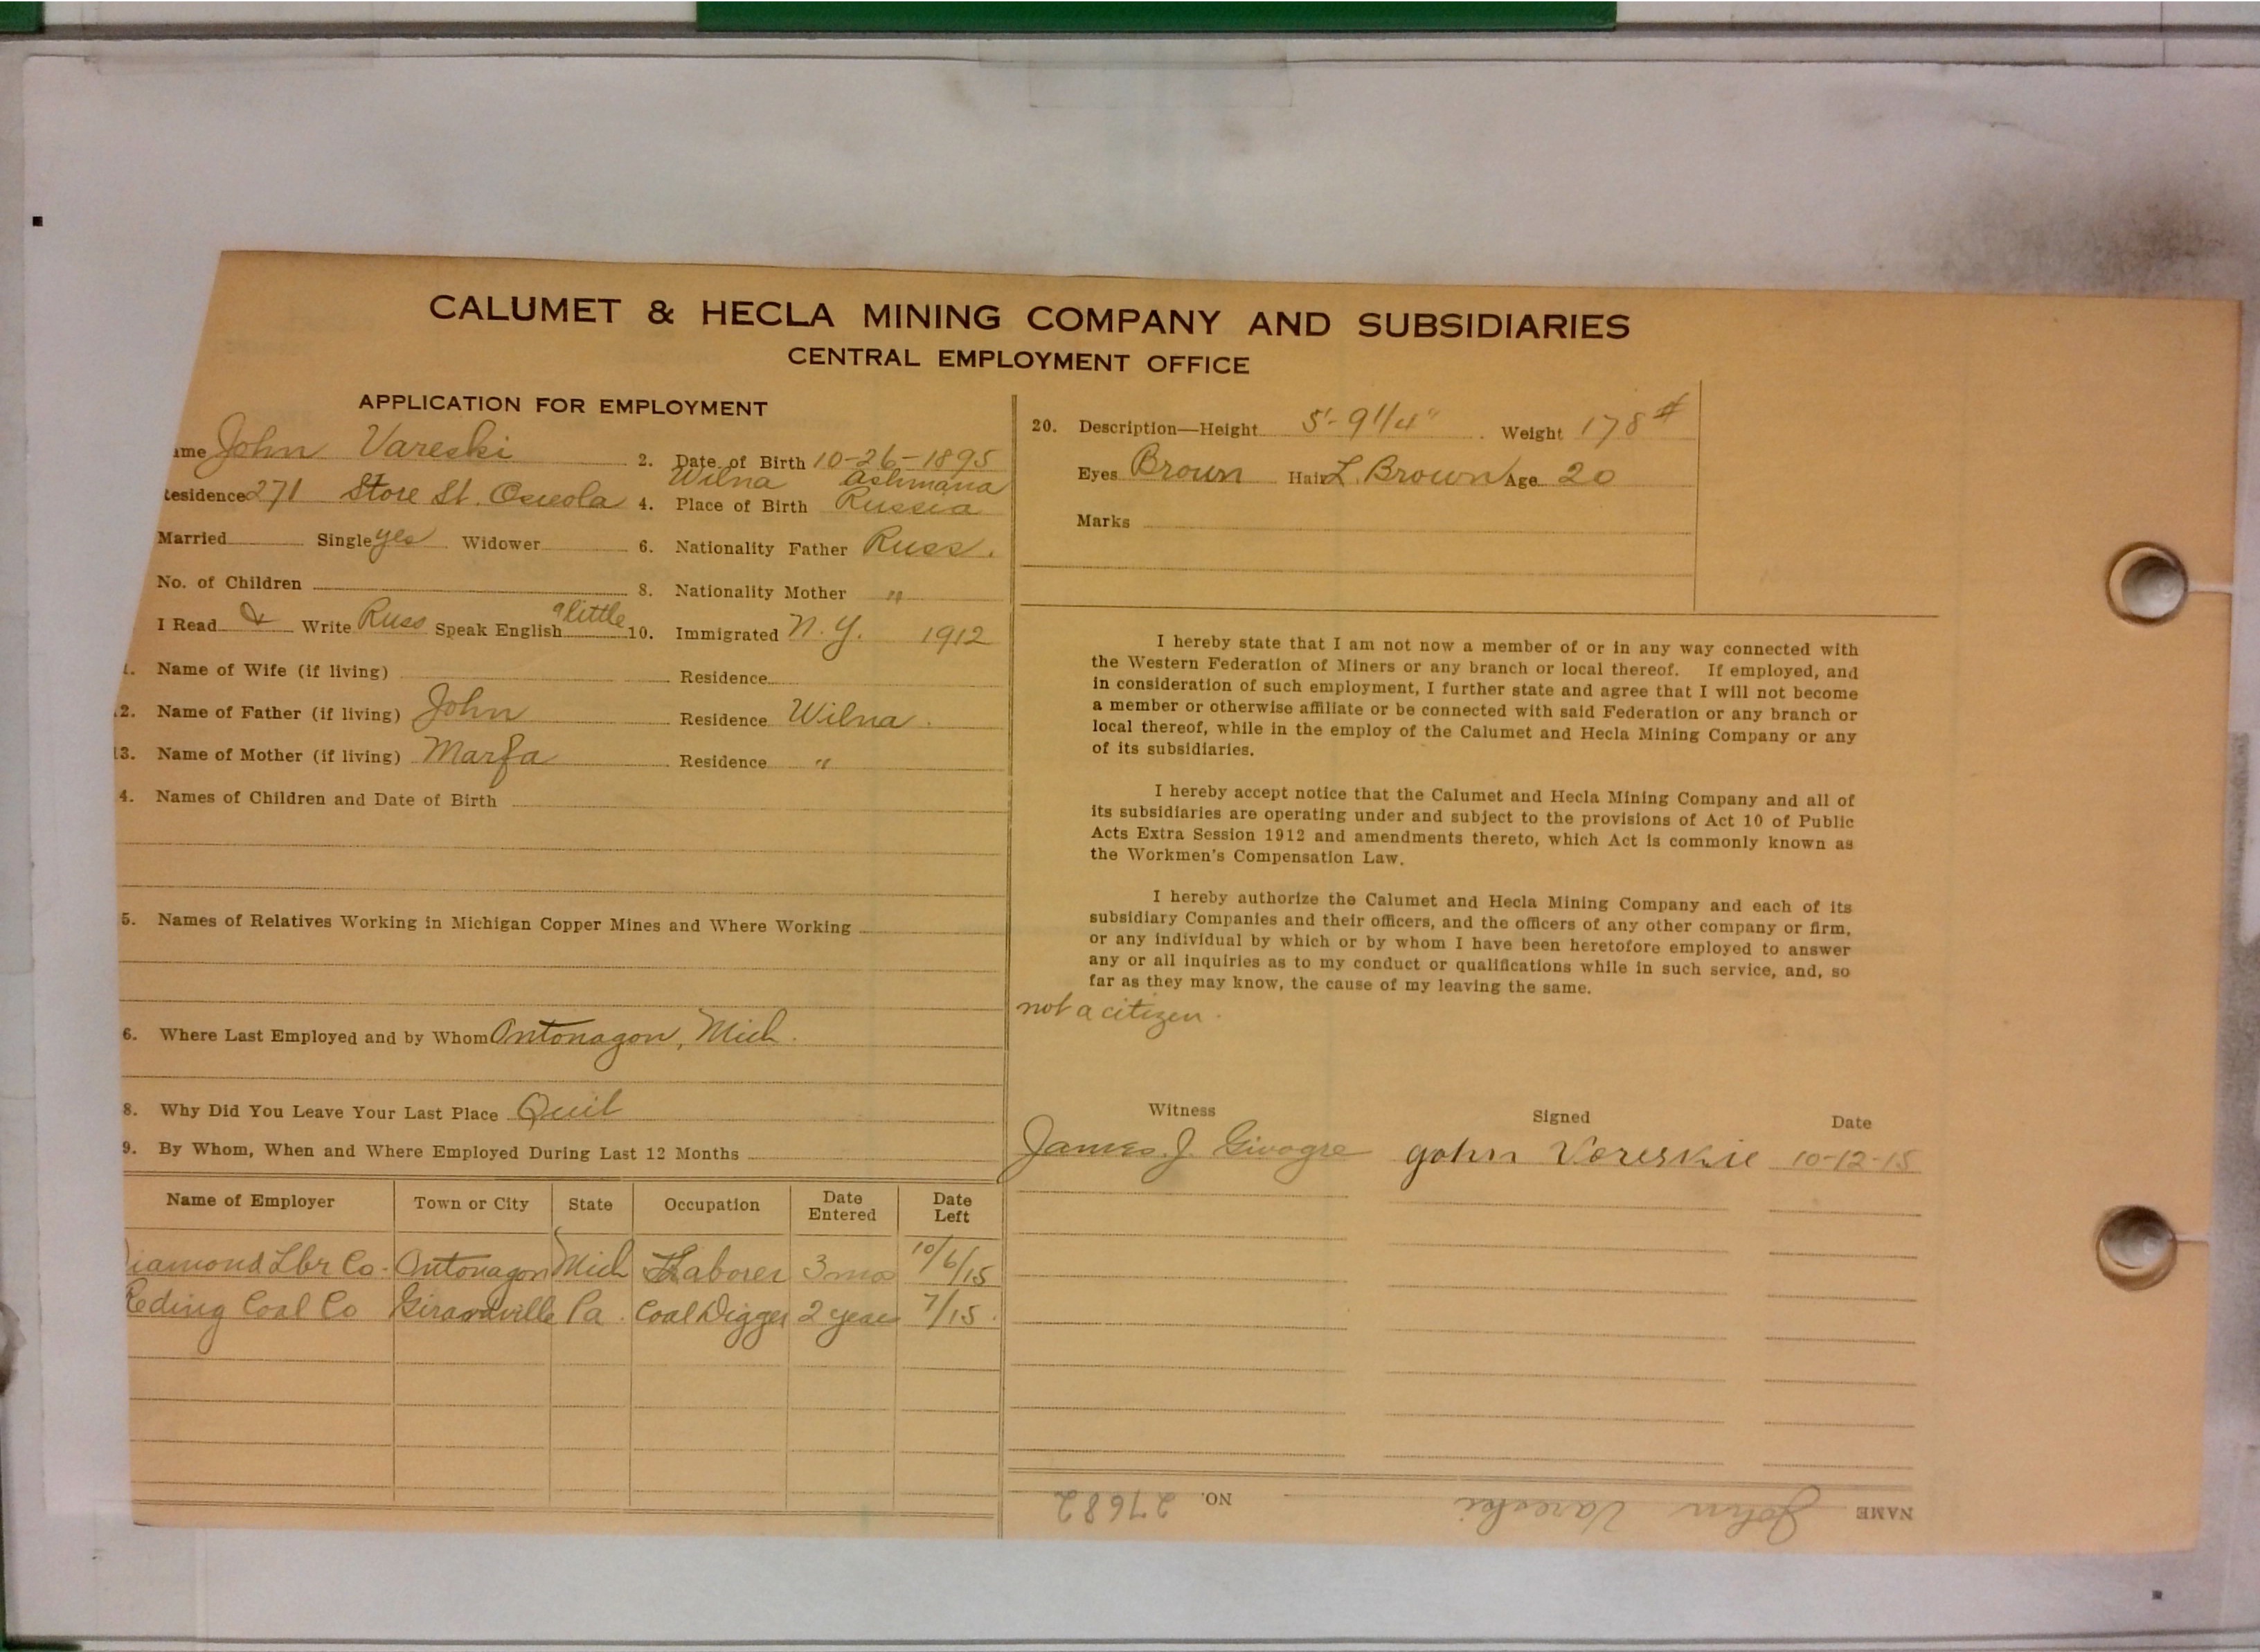 CALUMET & HECLA MINING COMPANY AND SUBSIDIARIES
CENTRAL EMPLOYMENT OFFICE
APPLICATION FOR EMPLOYMENT
ame John Vareski 2. Date of Birth 10-26-1895
esidence 271 Store St. Osceola 4. Place of Birth Wilna Ashmana Russia
Married Single yes Widower 6. Nationality Father Russ.
No. of Children 8. Nationality Mother "
I Read & Write Russ Speak English a little 10. Immigrated N.Y. 1912
1. Name of Wife (if living) Residence
12. Name of Father (if living) John Residence Wilna.
13. Name of Mother (if living) Marfa Residence "
4. Names of Children and Date of Birth
5. Names of Relatives Working in Michigan Copper Mines and Where Working
6. Where Last Employed and by Whom Ontonagon, Mich.
8. Why Did You Leave Your Last Place Quit
9. By Whom, When and Where Employed During Last 12 Months
Name of Employer Town or City State Occupation Date Entered Date Left
iamond Lbr Co. Ontonagon Mich Laborer 3 mo 10/6/15
Reding Coal Co Girardville Pa. Coal Digger 2 year 7/15.
20. Description—Height 5'-9 1/4" Weight 178#
Eyes Brown Hair L. Brown Age 20
Marks
I hereby state that I am not now a member of or in any way connected with
the Western Federation of Miners or any branch or local thereof. If employed, and
in consideration of such employment, I further state and agree that I will not become
a member or otherwise affiliate or be connected with said Federation or any branch or
local thereof, while in the employ of the Calumet and Hecla Mining Company or any
of its subsidiaries.
I hereby accept notice that the Calumet and Hecla Mining Company and all of
its subsidiaries are operating under and subject to the provisions of Act 10 of Public
Acts Extra Session 1912 and amendments thereto, which Act is commonly known as
the Workmen's Compensation Law.
I hereby authorize the Calumet and Hecla Mining Company and each of its
subsidiary Companies and their officers, and the officers of any other company or firm,
or any individual by which or by whom I have been heretofore employed to answer
any or all inquiries as to my conduct or qualifications while in such service, and, so
far as they may know, the cause of my leaving the same.
not a citizen.
Witness Signed Date
James. J. John Vareskie 10-12-15
NAME John Vareski NO. 27682